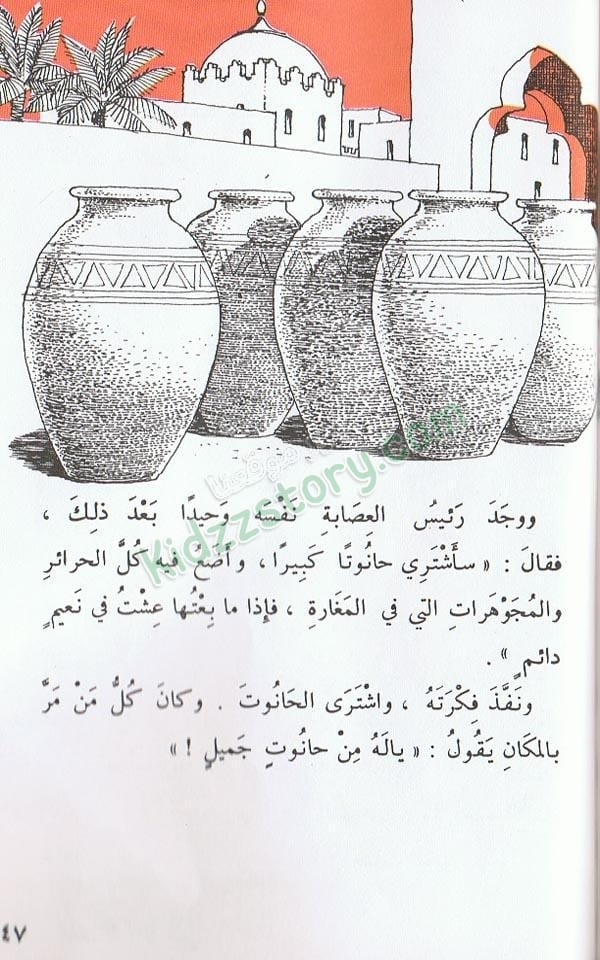 ووجَدَ رَئيسُ العِصَابةِ نَفْسَه وحيدًا بَعْدَ ذلِكَ ،
فقالَ : « سأَشْتَرِي حانُوتًا كَبيرًا ، وأضَعُ فيه كُلَّ الحرائرِ
والمُجَوْهَراتِ التي في المَغارةِ ، فإذا ما بِعْتُها عِشْتُ في نَعيمٍ
دائمٍ » .
ونَفَّذَ فِكْرَتَهُ ، واشْتَرَى الحَانُوتَ . وكانَ كُلُّ مَنْ مَرَّ
بالمكَانِ يَقُولُ : « يالَهُ مِنْ حانُوتٍ جَميلٍ ! »
موقعنا
Kidzzstory.com
٤٧